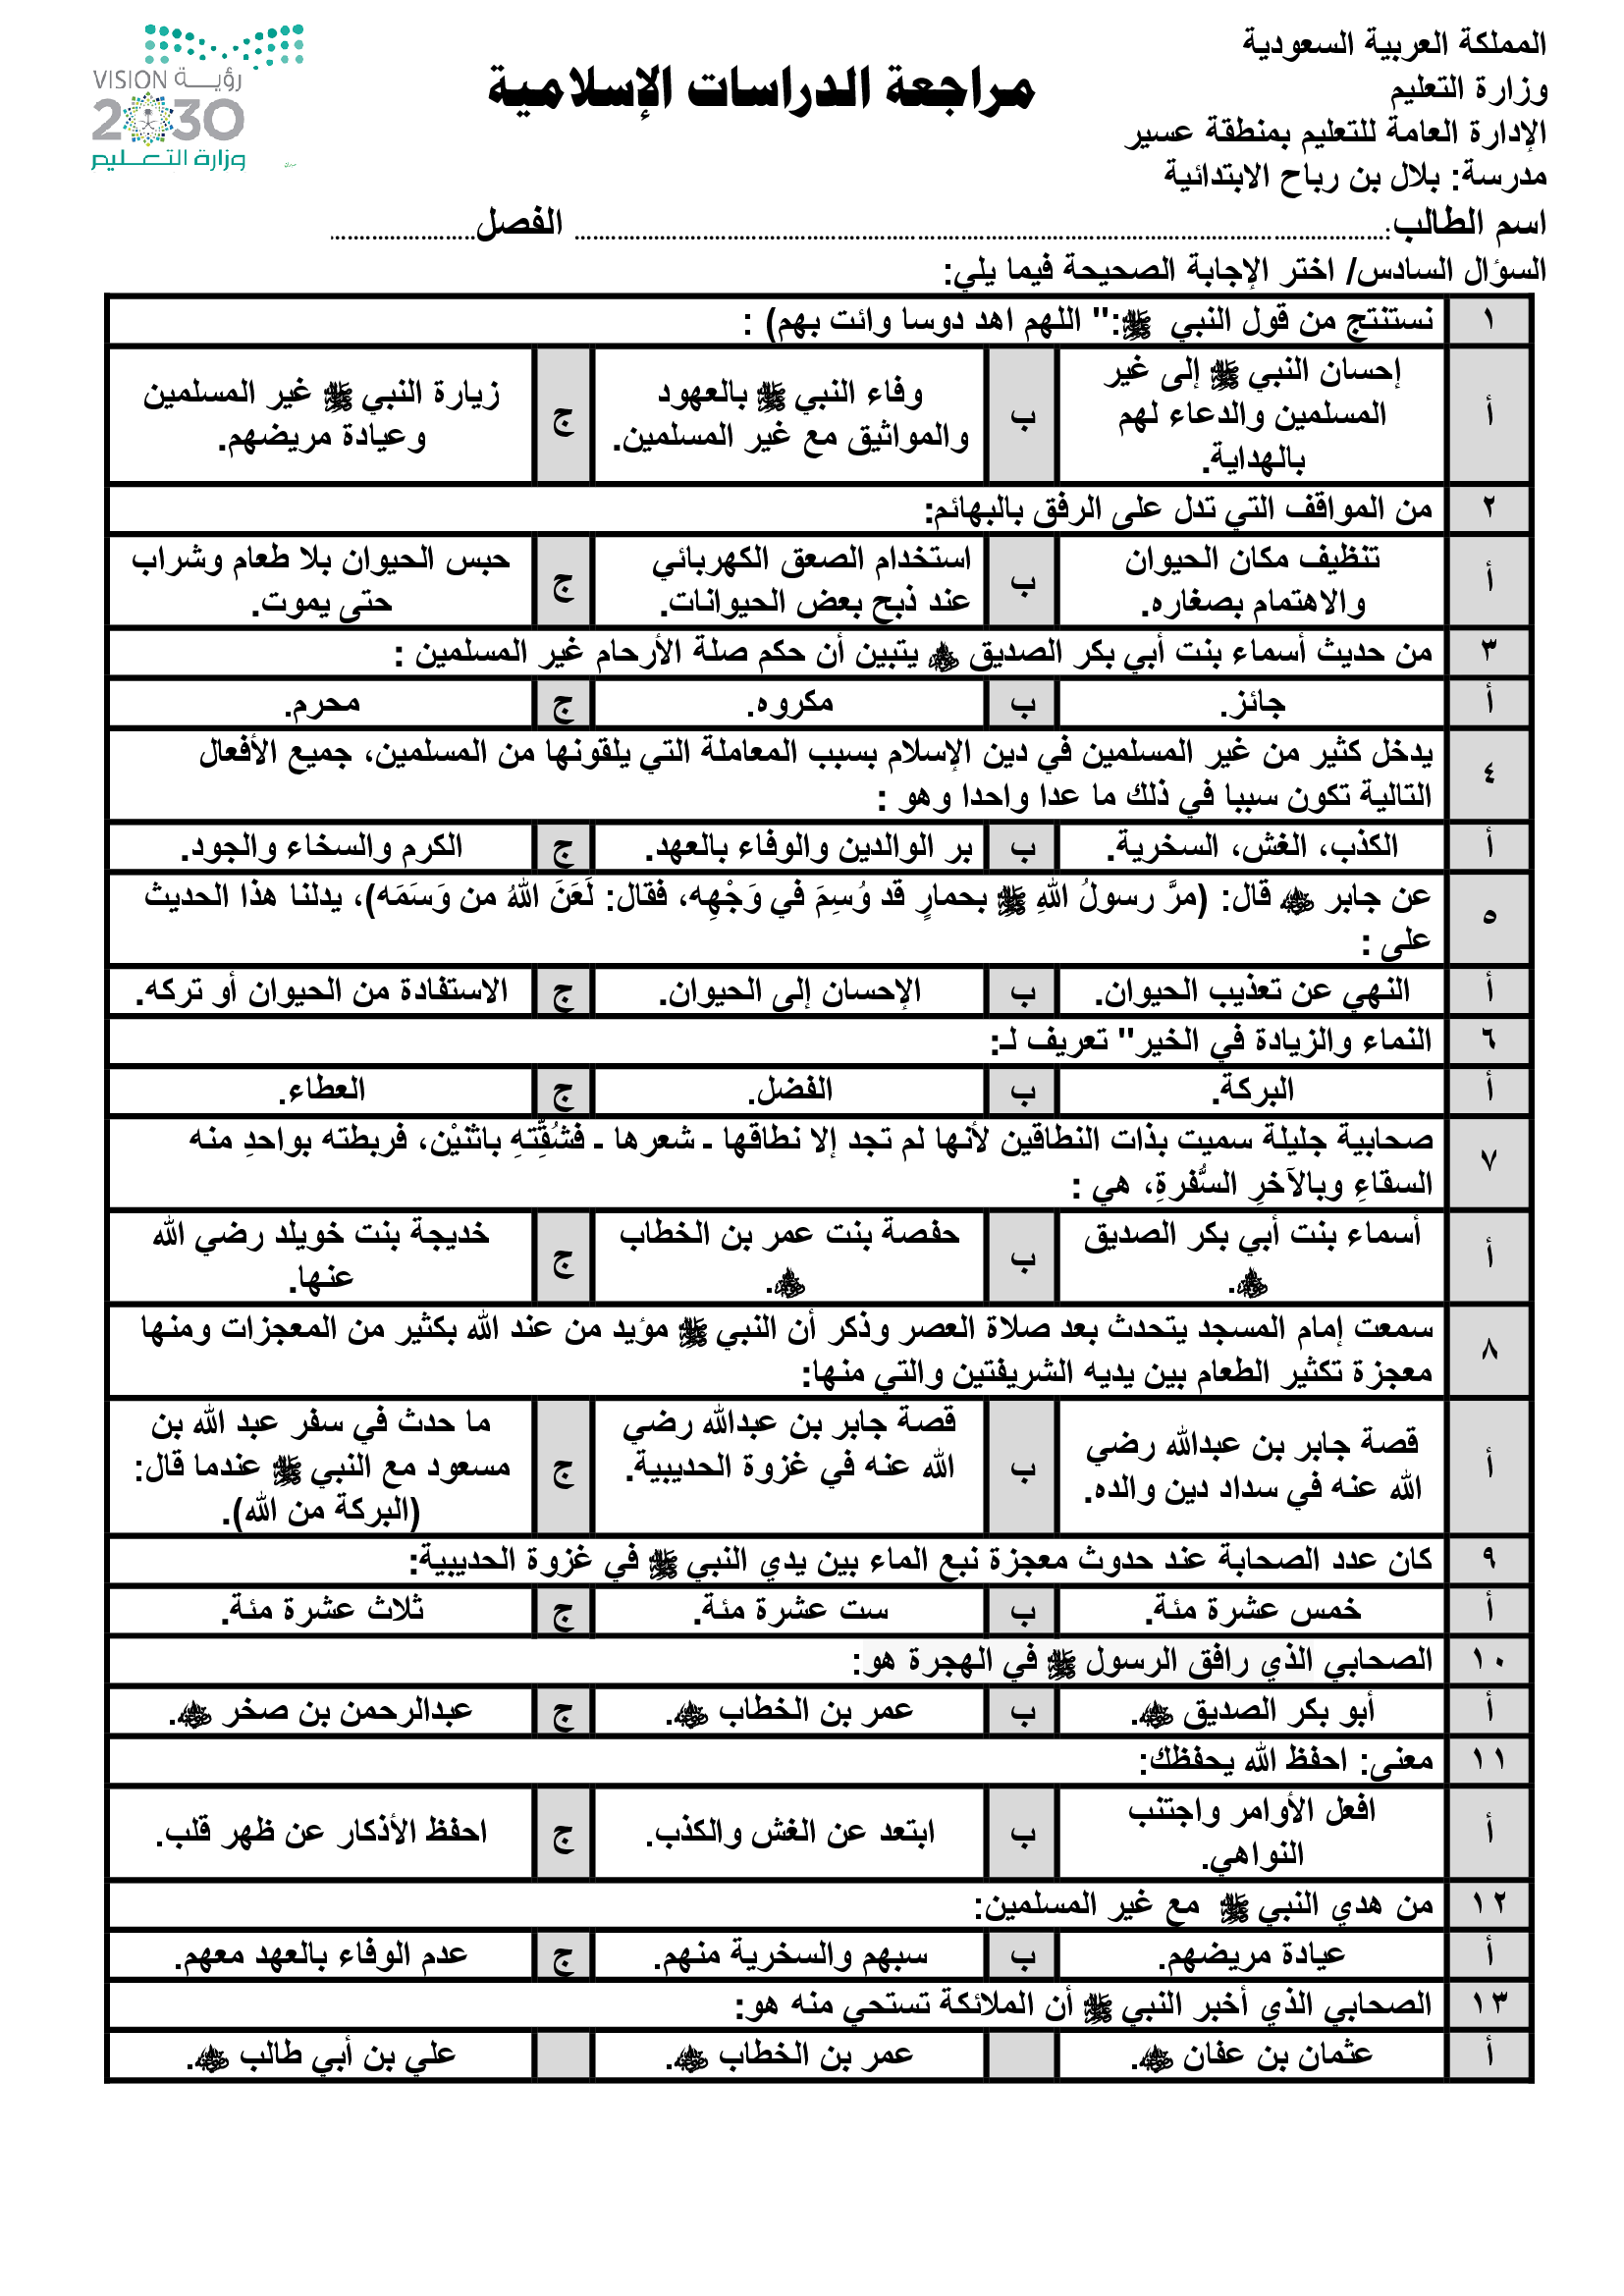 المملكة العربية السعودية
وزارة التعليم
الإدارة العامة للتعليم بمنطقة عسير
مدرسة: بلال بن رباح الابتدائية
مراجعة الدراسات الإسلامية
رؤيـة VISION
2030
وزارة التعـليم
اسم الطالب:.................................................................. الفصل........................
السؤال السادس/ اختر الإجابة الصحيحة فيما يلي:
١ نستنتج من قول النبي ﷺ:" اللهم اهد دوسا وائت بهم) :
أ إحسان النبي ﷺ إلى غير
المسلمين والدعاء لهم
بالهداية.
ب وفاء النبي ﷺ بالعهود
والمواثيق مع غير المسلمين.
ج زيارة النبي ﷺ غير المسلمين
وعيادة مريضهم.
٢ من المواقف التي تدل على الرفق بالبهائم:
أ تنظيف مكان الحيوان
والاهتمام بصغاره.
ب استخدام الصعق الكهربائي
عند ذبح بعض الحيوانات.
ج حبس الحيوان بلا طعام وشراب
حتى يموت.
٣ من حديث أسماء بنت أبي بكر الصديق ﵁ يتبين أن حكم صلة الأرحام غير المسلمين :
أ جائز. ب مكروه. ج محرم.
٤ يدخل كثير من غير المسلمين في دين الإسلام بسبب المعاملة التي يلقونها من المسلمين، جميع الأفعال
التالية تكون سببا في ذلك ما عدا واحدا وهو :
أ الكذب، الغش، السخرية. ب بر الوالدين والوفاء بالعهد. ج الكرم والسخاء والجود.
٥ عن جابر ﵁ قال: (مرَّ رسولُ اللهِ ﷺ بحمارٍ قد وُسِمَ في وَجْهِه، فقال: لَعَنَ اللهُ من وَسَمَه)، يدلنا هذا الحديث
على :
أ النهي عن تعذيب الحيوان. ب الإحسان إلى الحيوان. ج الاستفادة من الحيوان أو تركه.
٦ النماء والزيادة في الخير" تعريف لـ:
أ البركة. ب الفضل. ج العطاء.
٧ صحابية جليلة سميت بذات النطاقين لأنها لم تجد إلا نطاقها ـ شعرها ـ فشُقِّتهِ باثنيْن، فربطته بواحدِ منه
السقاءِ وبالآخرِ السُّفرةِ، هي :
أ أسماء بنت أبي بكر الصديق
﵁.
ب حفصة بنت عمر بن الخطاب
﵁.
ج خديجة بنت خويلد رضي الله
عنها.
٨ سمعت إمام المسجد يتحدث بعد صلاة العصر وذكر أن النبي ﷺ مؤيد من عند الله بكثير من المعجزات ومنها
معجزة تكثير الطعام بين يديه الشريفتين والتي منها:
أ قصة جابر بن عبدالله رضي
الله عنه في سداد دين والده.
ب قصة جابر بن عبدالله رضي
الله عنه في غزوة الحديبية.
ج ما حدث في سفر عبد الله بن
مسعود مع النبي ﷺ عندما قال:
(البركة من الله).
٩ كان عدد الصحابة عند حدوث معجزة نبع الماء بين يدي النبي ﷺ في غزوة الحديبية:
أ خمس عشرة مئة. ب ست عشرة مئة. ج ثلاث عشرة مئة.
١٠ الصحابي الذي رافق الرسول ﷺ في الهجرة هو:
أ أبو بكر الصديق ﵁. ب عمر بن الخطاب ﵁. ج عبدالرحمن بن صخر ﵁.
١١ معنى: احفظ الله يحفظك:
أ افعل الأوامر واجتنب
النواهي.
ب ابتعد عن الغش والكذب. ج احفظ الأذكار عن ظهر قلب.
١٢ من هدي النبي ﷺ مع غير المسلمين:
أ عيادة مريضهم. ب سبهم والسخرية منهم. ج عدم الوفاء بالعهد معهم.
١٣ الصحابي الذي أخبر النبي ﷺ أن الملائكة تستحي منه هو:
أ عثمان بن عفان ﵁. عمر بن الخطاب ﵁. علي بن أبي طالب ﵁.